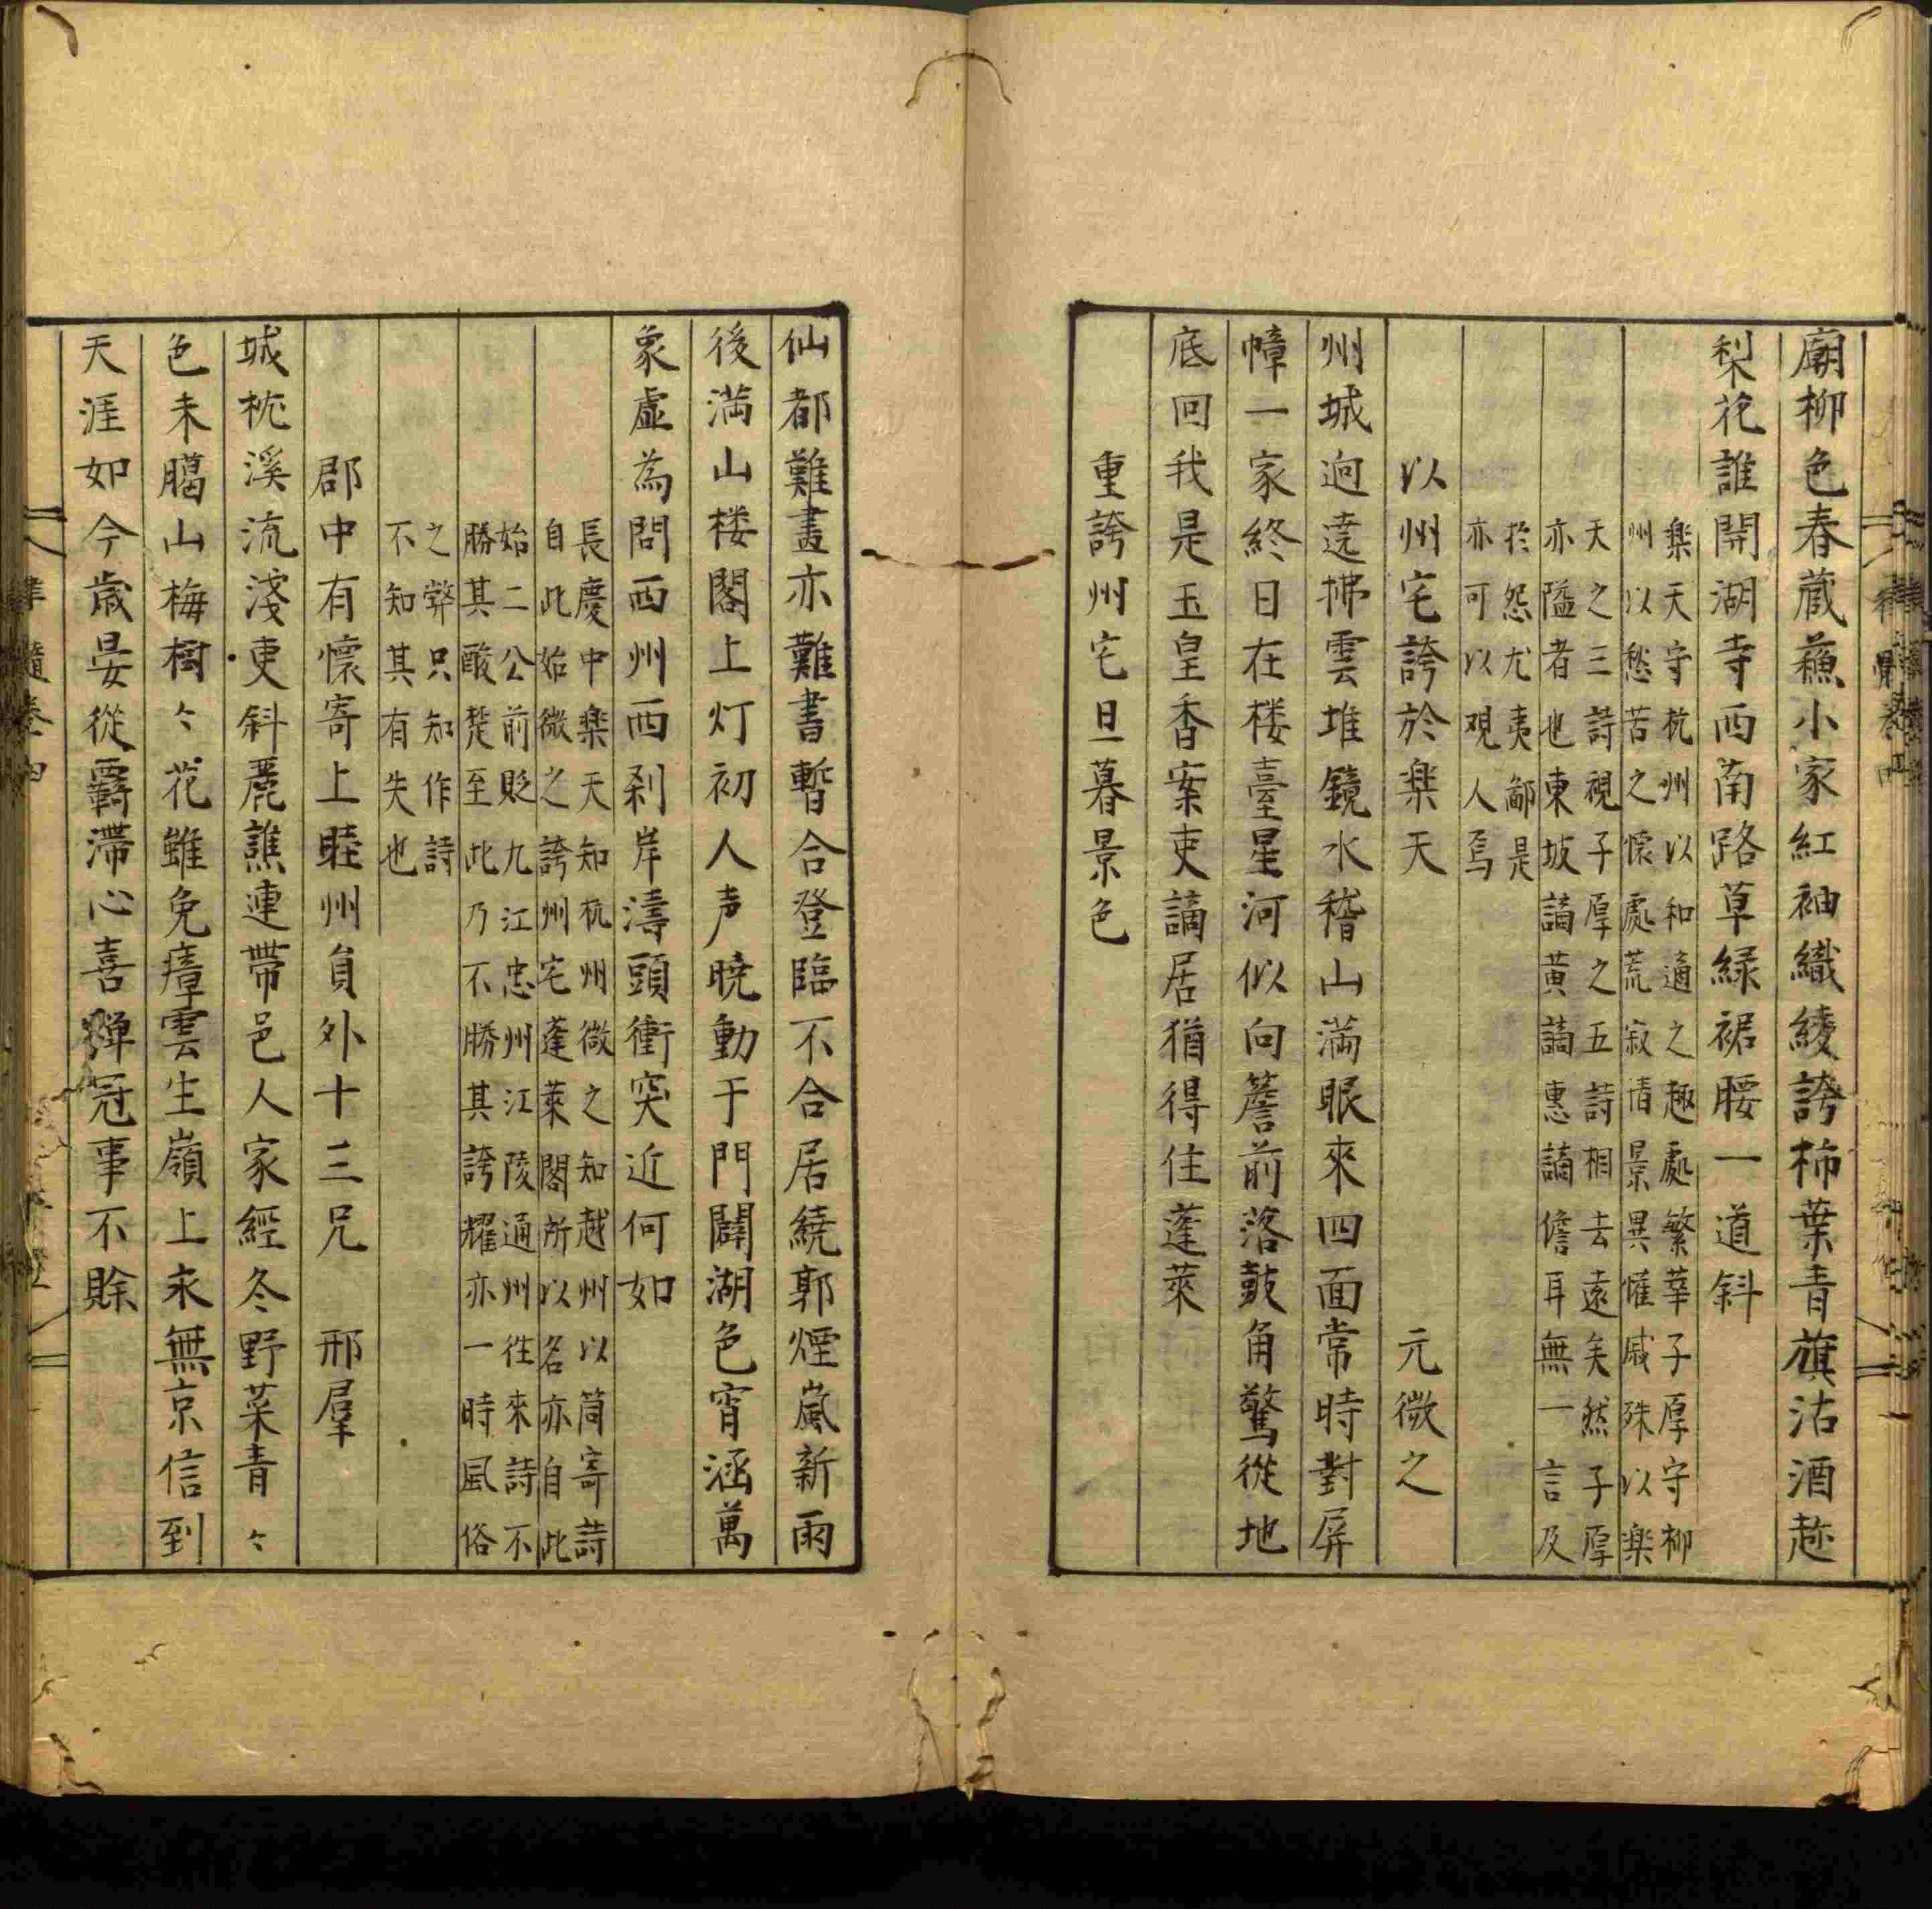 廟柳色春蔵蘓小家紅袖織綾誇柿葉青旗沽酒趂
梨花誰開湖寺西南路草緑裙腰一道斜
楽天守杭州以和適之趣處繁華子厚守柳
州以愁苦之懷處荒寂情景異懽戚殊以楽
天之三詩視子厚之五詩相去遠矣然子厚
亦隘者也東坡謫黄謫惠謫儋耳無一言及
於怨尤夷鄙是
亦可以观人焉
以州宅誇於楽天 元微之
州城迥遶拂雲堆鏡水稽山満眼來四面常時對屏
幛一家終日在楼臺星河似向簷前落鼓角驚從地
底回我是玉皇香案吏謫居猶得住蓬萊
重誇州宅旦暮景色
仙都難畫亦難書暫合登臨不合居繞郭煙嵐新雨
後満山楼閣上灯初人声暁動千門闢湖色宵涵萬
象虚為問西州西刹岸濤頭衝突近何如
長慶中楽天知杭州微之知越州以筒寄詩
自此始微之誇州宅蓬萊閣所以名亦自此
始二公前貶九江忠州江陵通州往來詩不
勝其酸楚至此乃不勝其誇耀亦一時風俗
之弊只知作詩
不知其有失也
郡中有懷寄上睦州員外十三兄 邢羣
城枕溪流淺更斜麗譙連帶邑人家經冬野菜青〻
色未臈山梅樹〻花雖免瘴雲生嶺上永無京信到
天涯如今歳晏從羇滯心喜彈冠事不賖
髓巻四